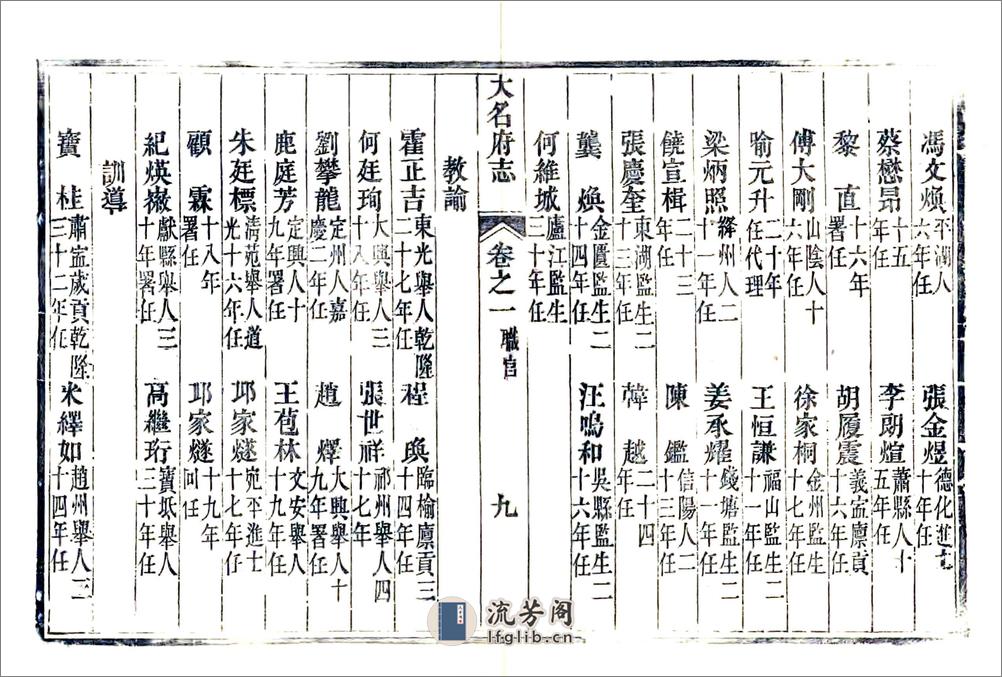 馮文煥 平湖人六年任 張金煜 德化進士十年任
蔡懋昂 十五年任 李朗煊 蕭縣人十五年任
黎直 十六年署任 胡履震 義盂廪貢十六年任
傅大剛 山陰人十六年任 徐家桐 金州監生十七年任
喻元升 二十年任代理 王恒謙 福山監生二十一年任
梁炳照 絳州人二十一年任 姜承燿 錢塘監生二十一年任
饒宣楫 二十三年任 陳鑑 信陽人二十三年任
張慶奎 東湖監生二十三年任 韓越 二十四年任
龔煥 金匱監生二十四年任 汪鳴和 吳縣監生二十六年任
何維城 廬江監生三十年任
大名府志 卷之一 職官 九
教諭
霍正吉 東光舉人乾隆二十七年任 程㬇 臨榆廪貢三十四年任
何廷珣 大興舉人三十八年任 張世祥 祁州舉人四十七年任
劉攀龍 定州人嘉慶二年任 趙燡 大興舉人十九年署任
鹿庭芳 定興人十九年署任 王苞林 文安舉人十年任
朱廷標 清苑舉人道光十六年任 邱家燧 宛平進士十七年任
顧霖 十八年署任 邱家燧 十九年回任
紀煐嶶 獻縣舉人三十年署任 高繼珩 寶坻舉人三十年任
訓導
竇桂 肅寧歲貢乾隆三十二年任 米繹如 趙州舉人三十四年任
流芳阁
lfglib.cn